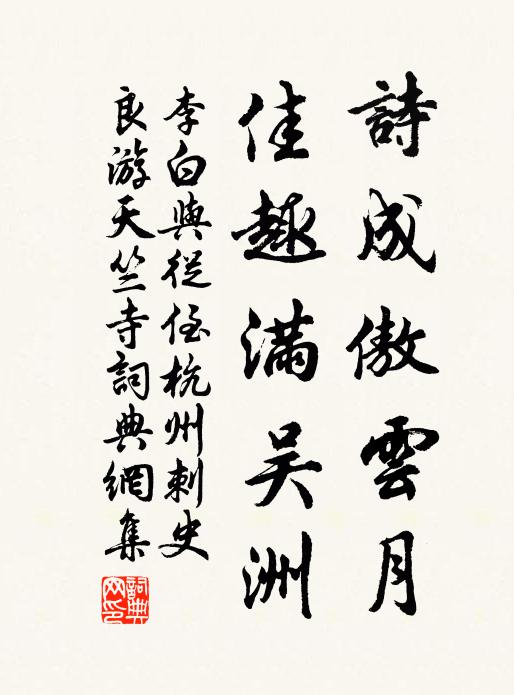 詩成傲雲月
佳趣滿吴洲
李白與從侄杭州刺史
良游天竺寺詞典網集
詞典
网印